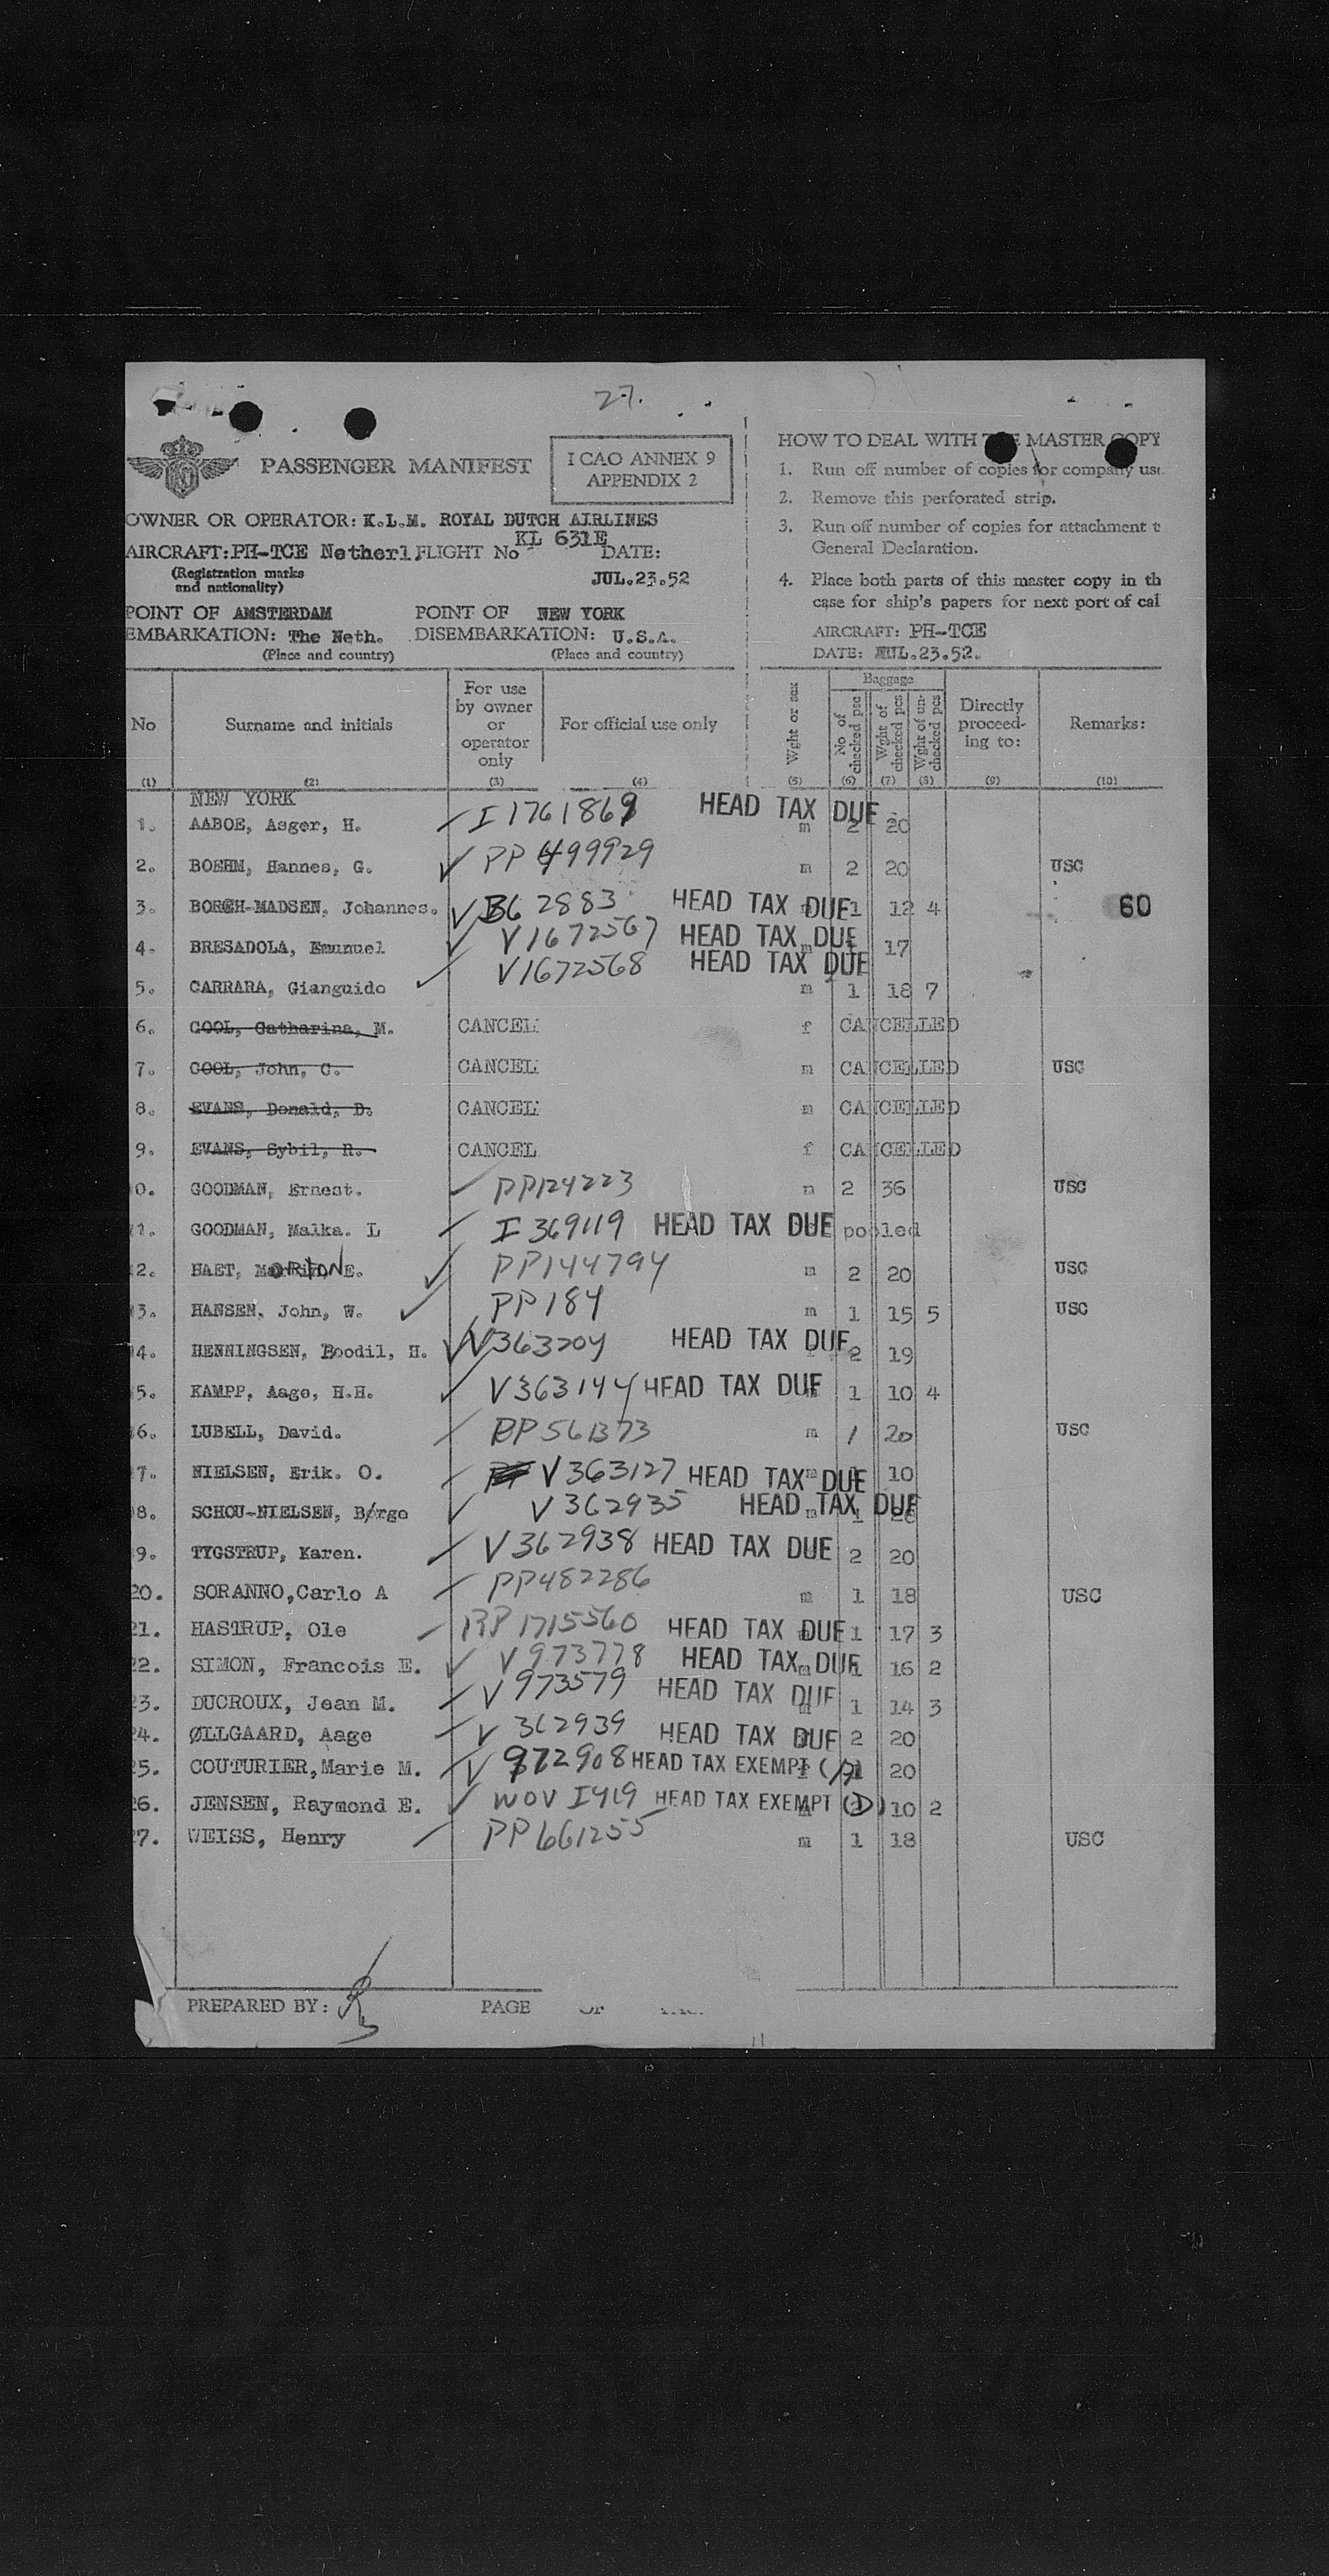 27.
PASSENGER MANIFEST
I CAO ANNEX 9
APPENDIX 2
OWNER OR OPERATOR: K.L.M. ROYAL DUTCH AIRLINES
KL 631E
AIRCRAFT: PH-TCE Netherl. FLIGHT No DATE:
(Registration marks
and nationality)
JUL.23.52
POINT OF AMSTERDAM POINT OF NEW YORK
EMBARKATION: The Neth. DISEMBARKATION: U.S.A.
(Place and country) (Place and country)
HOW TO DEAL WITH MASTER COPY
1. Run off number of copies for company use
2. Remove this perforated strip.
3. Run off number of copies for attachment t
General Declaration.
4. Place both parts of this master copy in th
case for ship's papers for next port of cal
AIRCRAFT: PH-TCE
DATE: JUL.23.52.
No
Surname and initials
For use
by owner
or
operator
only
For official use only
Wght or sex
Baggage
No of
checked psc
Wght of
checked pcs
Wght of un-
checked pcs
Directly
proceed-
ing to:
Remarks:
(1) (2) (3) (4) (5) (6) (7) (8) (9) (10)
NEW YORK
1. AABOE, Asger, H. I 1761869 HEAD TAX DUE m 2 20
2. BOEHM, Hannes, G. PP 499929 m 2 20 USC
3. BORCH-MADSEN, Johannes. 362883 HEAD TAX DUE 1 12 4 60
4. BRESADOLA, Emunuel V1672567 HEAD TAX DUE m 17
5. CARRARA, Gianguido V1672568 HEAD TAX DUE m 1 18 7
6. COOL, Catharina, M. CANCEL f CANCELLED
7. COOL, John, C. CANCEL m CANCELLED USC
8. EVANS, Donald, D. CANCEL m CANCELLED
9. EVANS, Sybil, R. CANCEL f CANCELLED
0. GOODMAN, Ernest. PP124223 m 2 36 USC
1. GOODMAN, Malka. L I 369119 HEAD TAX DUE pooled
2. HAET, ORTON E. PP144794 m 2 20 USC
3. HANSEN, John, W. PP184 m 1 15 5 USC
4. HENNINGSEN, Boodil, H. V363204 HEAD TAX DUE 2 19
5. KAMPP, Aage, H.H. V363144 HEAD TAX DUE 1 10 4
6. LUBELL, David. PP561373 m 1 20 USC
7. NIELSEN, Erik. O. V363127 HEAD TAX DUE m 10
8. SCHOU-NIELSEN, Børge V362935 HEAD TAX DUE m 1
9. TYGSTRUP, Karen. V362938 HEAD TAX DUE 2 20
20. SORANNO, Carlo A PP482286 m 1 18 USC
21. HASTRUP, Ole PP1715560 HEAD TAX DUE 1 17 3
22. SIMON, Francois E. V973778 HEAD TAX DUE m 1 16 2
23. DUCROUX, Jean M. V973579 HEAD TAX DUE 1 14 3
24. ØLLGAARD, Aage V362939 HEAD TAX DUE 2 20
25. COUTURIER, Marie M. V972908 HEAD TAX EXEMPT f 20
26. JENSEN, Raymond E. WOV I419 HEAD TAX EXEMPT (D) 10 2
27. WEISS, Henry PP661255 m 1 18 USC
PREPARED BY: PAGE OF